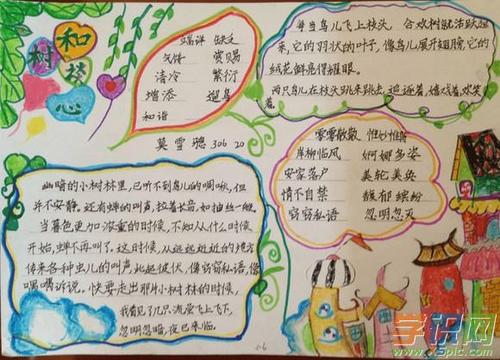 和
树
校
心
端详 缺乏
气候 赏赐
清冷 繁衍
增添 遛鸟
和谐
莫雪骢 306 20
每当鸟飞上枝头,合欢树就活跃起
来,它的羽状的叶子,像鸟儿展开翅膀,它的
绒花鲜亮得耀眼。
两只鸟儿在枝头跳来跳去,追逐着,嬉戏着,欢笑
着。
零零散散 惟妙惟肖
岸柳临风 婀娜多姿
安家落户 美轮美奂
情不自禁 馥郁缤纷
窃窃私语 忽明忽灭
幽暗的小树林里,已听不到鸟儿的啁啾,但
并不安静。还有蝉的叫声,拉着长音,如抽丝一般。
当暮色更加浓重的时候,不知从什么时候
开始,蝉不再叫了。这时候,从远远近近的地方
传来各种虫儿的叫声,此起彼伏,像窃窃私语,像
喁喁诉说。快要走出那片小树林的时候,
我看见了几只流萤飞上飞下,
忽明忽暗,夜已来临。
学识网